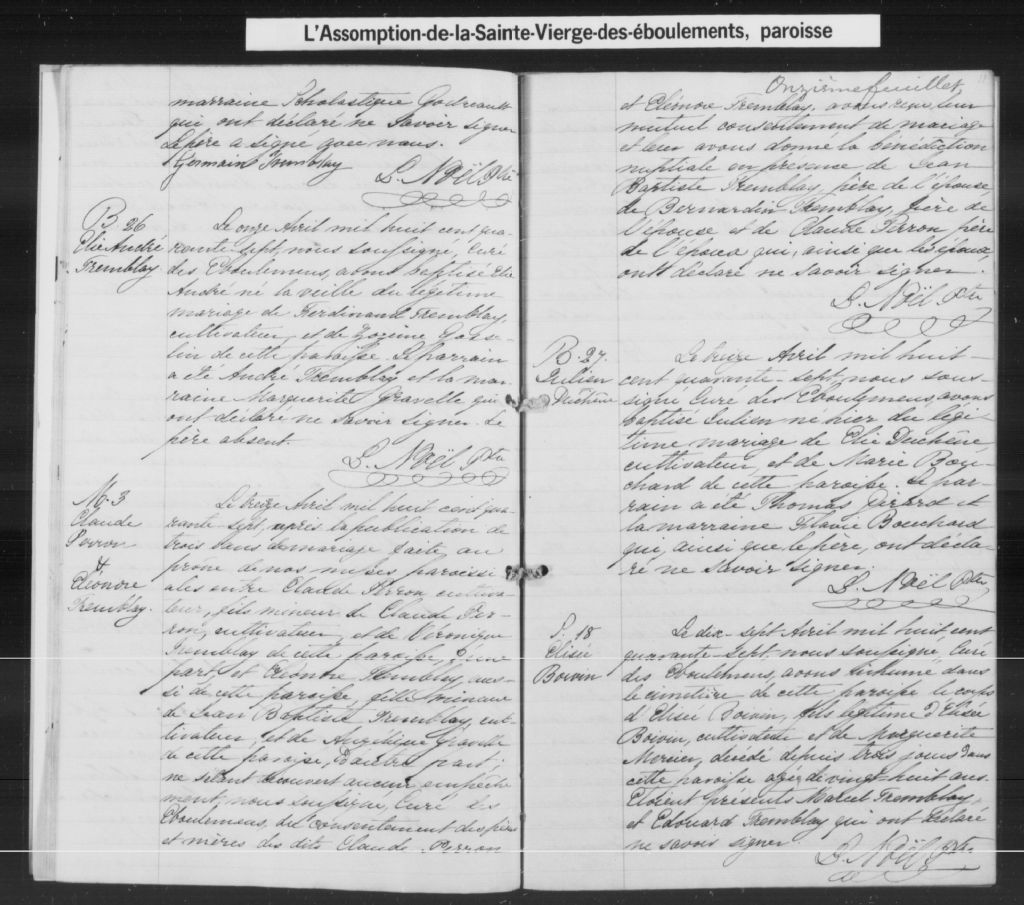 L'Assomption-de-la-Sainte-Vierge-des-éboulements, paroisse
marraine Scholastique Godreault
qui ont déclaré ne savoir signer
Le père a signé avec nous.
Germain Tremblay
L. Noël Ptre
B. 26
Elie André
Tremblay
Le onze Avril mil huit cent qua-
rante sept, nous soussigné, Curé
des Eboulemens, avons baptisé Elie
André né la veille du légitime
mariage de Ferdinand Tremblay,
cultivateur, et de Gos-
lin de cette paroisse. Le parrain
a été André Tremblay et la mar-
raine Marguerite Gravelle qui
ont déclaré ne savoir signer. Le
père absent
L. Noël Ptre
M. 3
Claude
Perron
&
Eléonore
Tremblay.
Le treize Avril mil huit cent qua-
rante sept, après la publication de
trois bans de mariage faite, au
prone de nos messes paroissi
ales entre Claude Perron, cultiva-
teur, fils mineur de Claude Per-
ron, cultivateur, et de Véronique
Tremblay de cette paroisse, d'une
part, et Eléonore Tremblay, aus-
si de cette paroisse, fille mineure
de Jean Baptiste Tremblay, cul-
tivateur, et de Angélique Gravelle
de cette paroisse, d'autre part;
ne s'étant trouvé aucun empêche
ment, nous soussigné, Curé des
Eboulemens, du consentement des pères
et mères des dits Claude Perron
Onzième feuillet,
et Eléonore Tremblay, avons reçu leur
mutuel consentement de mariage
et leur avons donné la bénédiction
nuptiale en présence de Jean
Baptiste Tremblay, père de l'épouse
de Bernardin Tremblay, frère de
l'épouse et de Claude Perron, père
de l'époux qui, ainsi que les époux,
ont déclaré ne savoir signer.
L. Noël Ptre
B. 27.
Julien
Duchêne
Le treize Avril mil huit-
cent quarante-sept, nous sous-
signé Curé des Eboulemens avons
baptisé Julien né hier du légi-
time mariage de Elie Duchêne
cultivateur, et de Marie Bou-
chard de cette paroisse. Le par-
rain a été Thomas Girard et
la marraine Flavie Bouchard
qui, ainsi que le père, ont décla-
ré ne savoir signer.
L. Noël Ptre
S. 18
Elisée
Boivin
Le dix-sept Avril mil huit cent
quarante-sept, nous soussigné Curé
des Eboulemens, avons inhumé dans
le cimetière de cette paroisse le corps
d'Elisée Boivin, fils légitime d'Elisée
Boivin, cultivateur et de Marguerite
Mercier, décédé depuis trois jours dans
cette paroisse agé de vingt-huit ans.
Etoient présents Marcel Tremblay
et Edouard Tremblay qui ont déclaré
ne savoir signer.
L. Noël Ptre